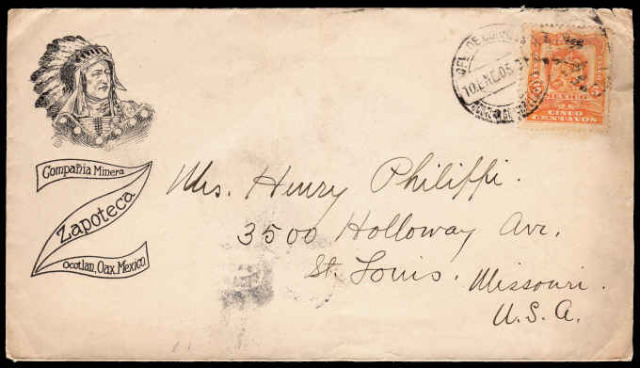 Compañia Minera
Zapoteca
Ocotlan, Oax. Mexico
MEXICO
CINCO
CENTAVOS
10 ENE 05
Mrs. Henry Philippi.
3500 Holloway Ave.
St. Louis. Missouri.
U.S.A.